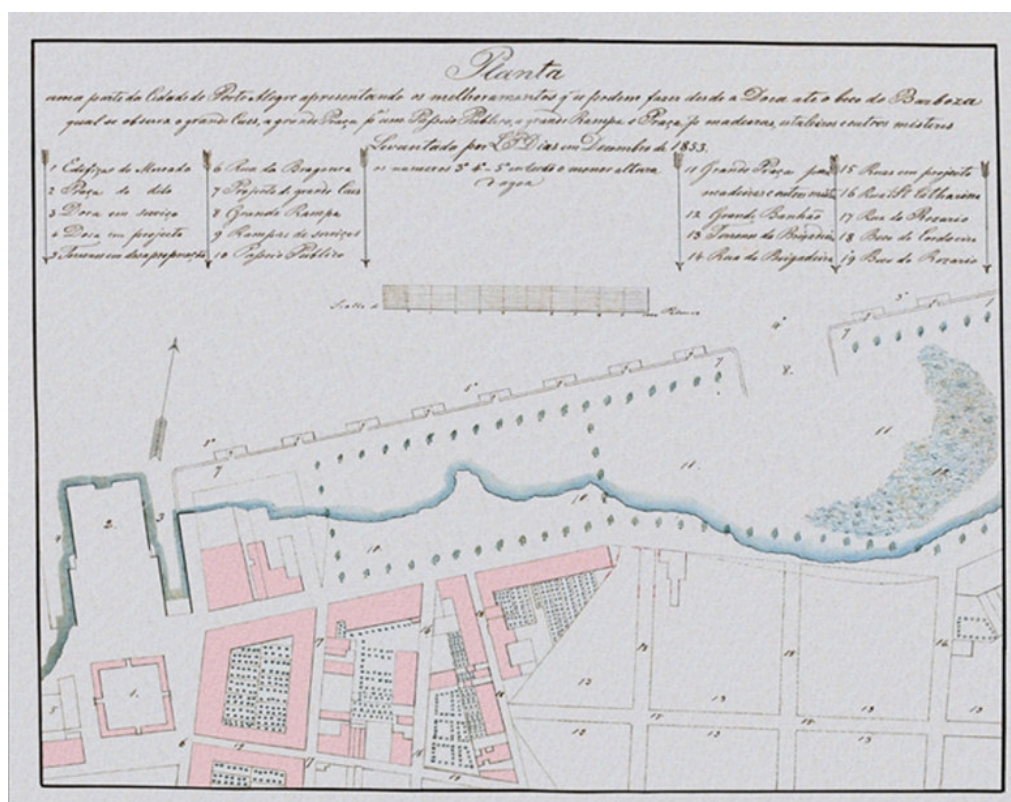 Planta
uma parte da Cidade de Porto Alegre apresentando os melhoramentos q' se podem fazer desde a Doca até o beco do Barboza
qual se observa o grande Caes, a grande Praça pª um Passeio Publico, a grande Rampa e Praça pª madeiras, estaleiros e outros misteres
Levantada por L P Dias em Dezembro de 1853.
os numeros 3ª 4ª - 5ª
o menor altura
d'agoa
1 Edificio do Mercado
2 Praça do dito
3 Doca em serviço
4 Doca em projecto
5 Terrenos em desapropriação
6 Rua da Bragança
7 Projecto de grande Caes
8 Grande Rampa
9 Rampas de serviços
10 Passeio Publico
11 Grande Praça para
madeiras e outros
12 Grande Banhão
13 Terrenos do Brigadeiro
14 Rua do Brigadeiro
15 Ruas em projecto
16 Rua Stª Catharina
17 Rua do Rozario
18 Beco do Cordoeiro
19 Beco do Rozario
Scalla de